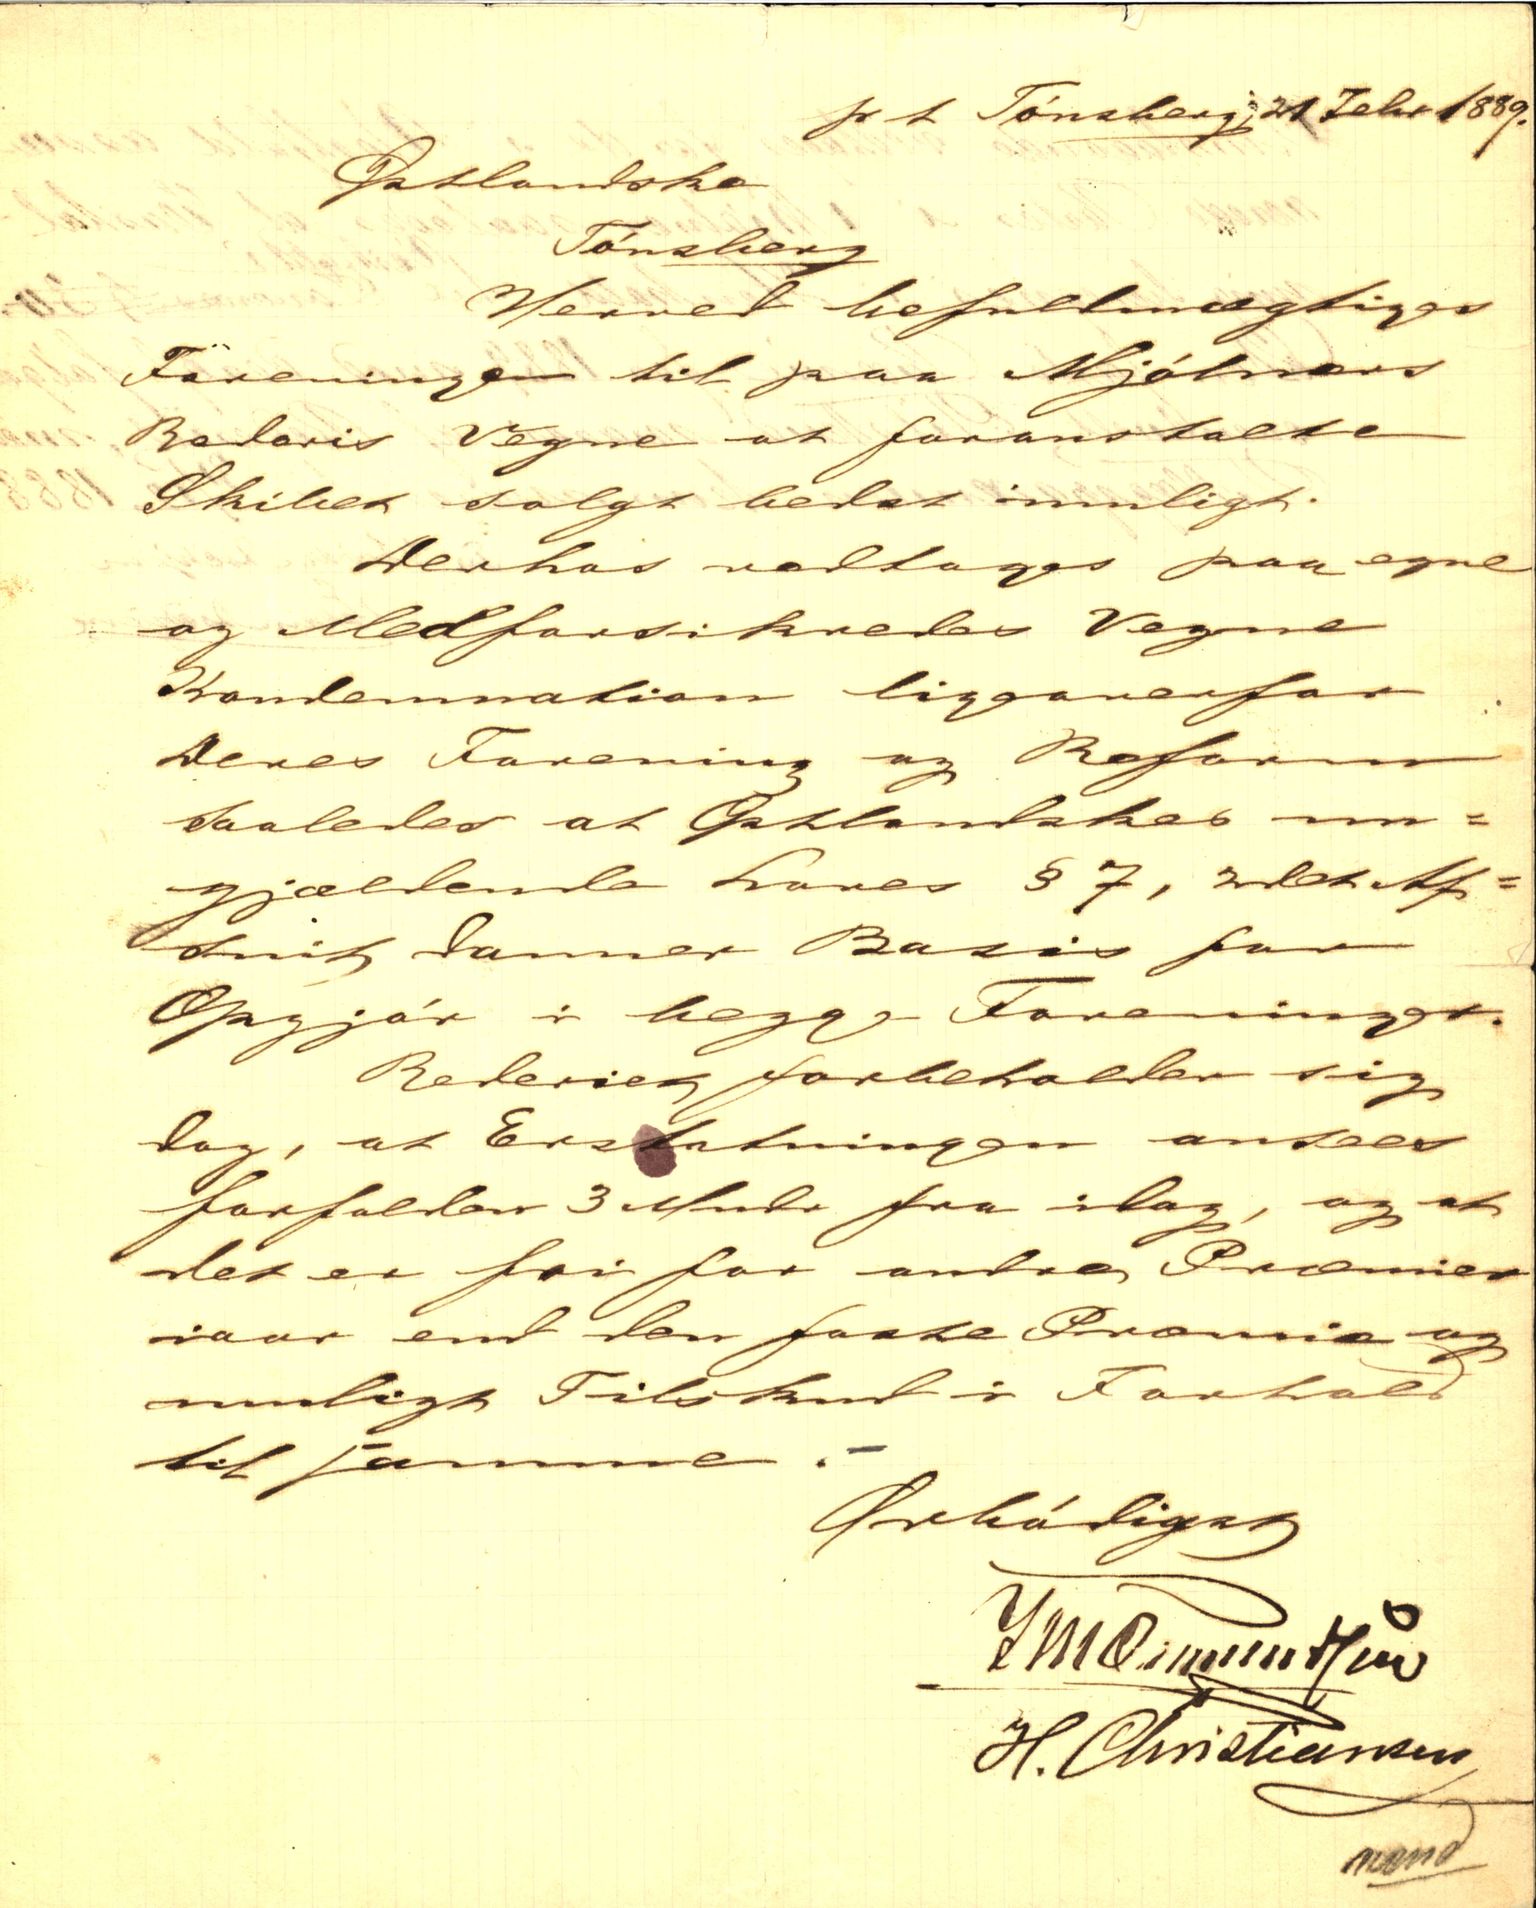 p t Tönsberg, 21 Febr 1889.
Østlandske
Tönsberg
Herved befuldmægtiges
Foreningen til paa Mjölners
Rederis Vegne at foranstalte
Skibet solgt bedst muligt.
Derhos vedtages paa egne
og Medforsikredes Vegne
Kondemnation ligeoverfor
Deres Forening og Reform
saaledes at Østlandskes nu=
gjældende Loves § 7, 2det Af=
snit danner Basis for
Opgjör i begge Foreninger.
Rederiet forbeholder sig
dog, at Erstatningen ansees
forfalden 3 Mndr fra idag, og at
det er fri for andre Præmier
iaar end den faste Præmie og
muligt Tilskud i Forhold
til samme. –
Ærbödigst
H. Christiansen